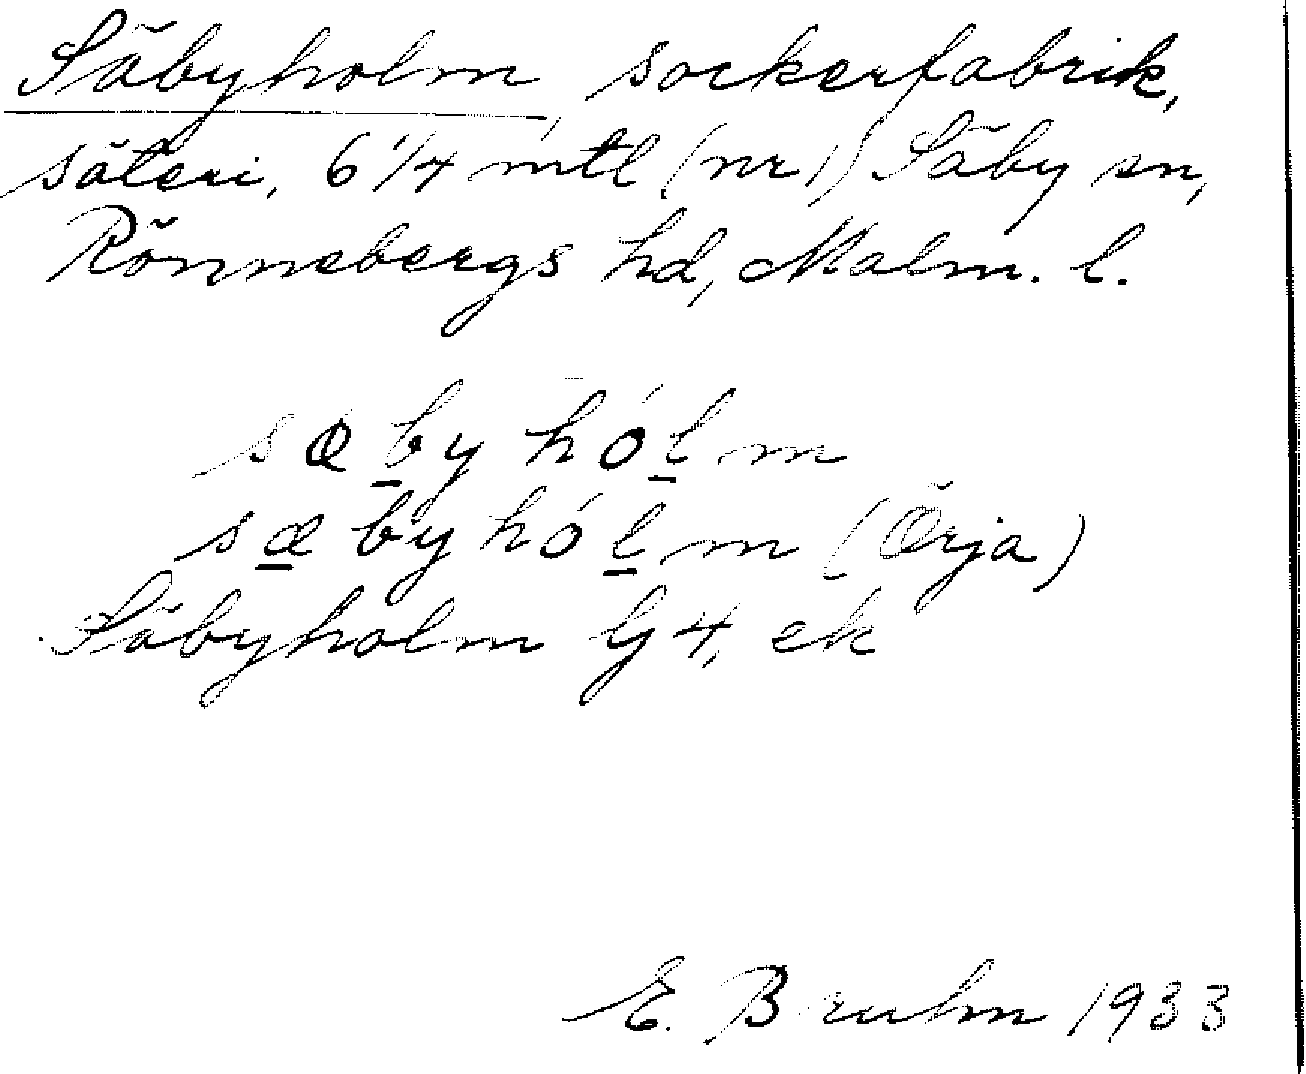 Säbyholm, sockerfabrik,
säteri, 6 1/4 mtl (nr 1) Säby sn,
Rönnebergs hd, Malm. l.
sæbyhólm
sæbyhólm (Örja)
Säbyholm lj 4, ek
E. Bruhn 1933